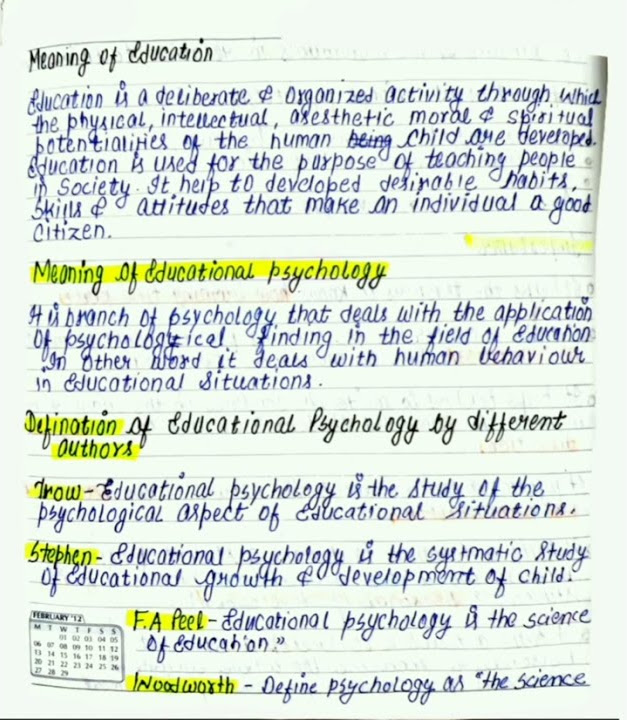 Meaning of Education
Education is a deliberate & organized activity through which
the physical, intellectual, asesthetic moral & spiritual
potentialities of the human being child are developed.
Education is used for the purpose of teaching people
in Society. It help to developed desirable habits,
Skills & attitudes that make an individual a good
Citizen.
Meaning of Educational psychology
It is branch of psychology that deals with the application
Of psychological finding in the field of Education
In other word it deals with human behaviour
in Educational Situations.
Defination of Educational Psychology by different
authors
Trow - Educational psychology is the study of the
psychological aspect of Educational situations.
Stephen - Educational psychology is the systmatic study
Of Educational growth & development of child.
F.A Peel - Educational psychology is the science
of Education."
Woodworth - Define psychology as "the science
FEBRUARY '12
M T W T F S S
01 02 03 04 05
06 07 08 09 10 11 12
13 14 15 16 17 18 19
20 21 22 23 24 25 26
27 28 29